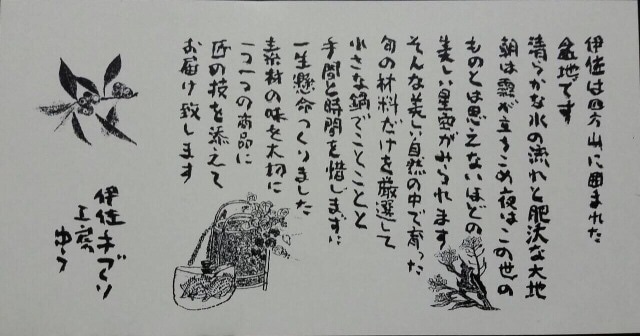 伊佐は四方山に囲まれた
盆地です
清らかな水の流れと肥沃な大地
朝は霧が立ちこめ夜はこの世の
ものとは思えないほどの
美しい星空がみられます
そんな美しい自然の中で育った
旬の材料だけを厳選して
小さな鍋でことことと
手間と時間を惜しまずに
一生懸命つくりました
素材の味を大切に
一つ一つの商品に
匠の技を添えて
お届け致します
伊佐手づくり
工房
ゆう